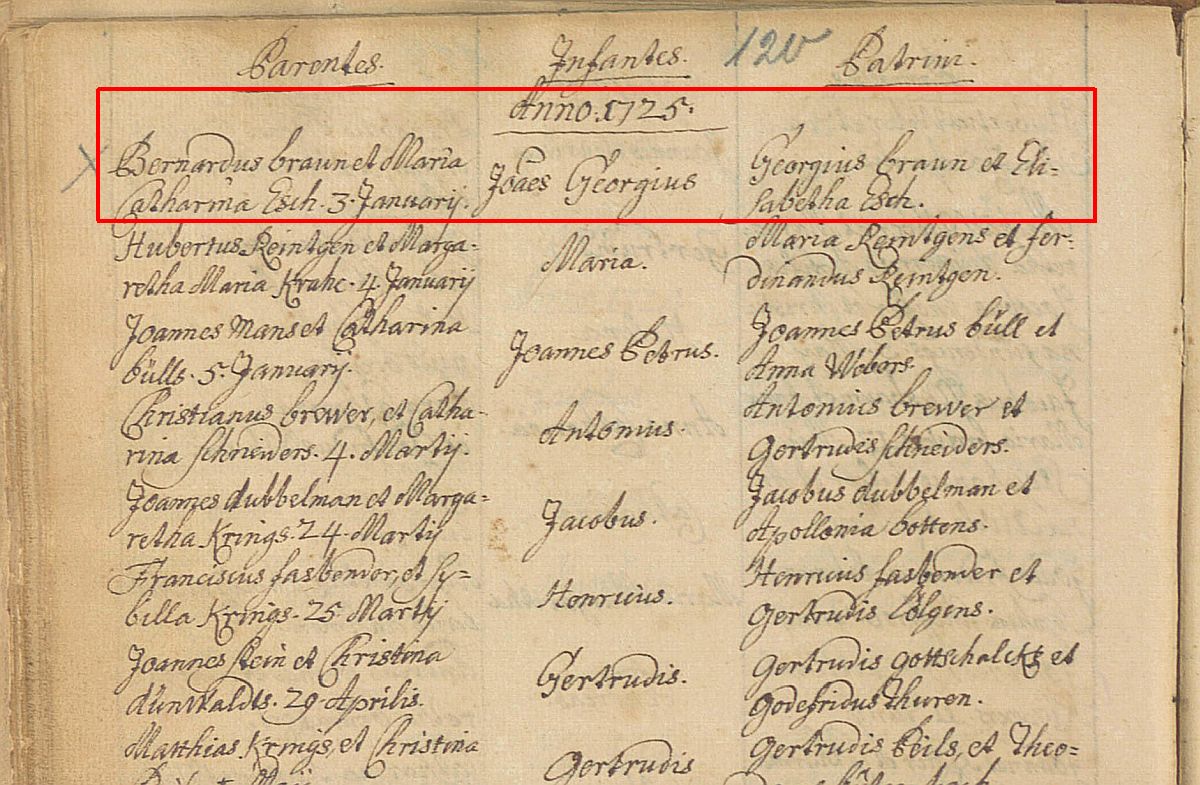 Parentes. Infantes. 120 Patrini.
Anno. 1725.
Bernardus braun et Maria
Catharina Esch. 3. Januarij.
Joaes Georgius
Georgius braun et Eli-
sabetha Esch.
Hubertus Reintgen et Marga-
retha Maria Krahe. 4. Januarij
Maria.
Maria Reintgens et fer-
dinandus Reintgen.
Joannes Mans et Catharina
bülls. 5. Januarij.
Joannes Petrus.
Joannes Petrus büll et
Anna Webers.
Christianus brewer, et Catha-
rina schneiders. 4. Martij.
Antonius.
Antonius brewer et
Gertrudis schneiders.
Joannes dubbelman et Marga-
retha Krings. 24. Martij
Jacobus.
Jacobus dubbelman et
Apollonia bottens.
Franciscus fasbender, et Sy-
billa Krings. 25. Martij
Henricus.
Henricus fasbender et
Gertrudis lölgens.
Joannes stein et Christina
dünwaldts. 29. Aprilis.
Gertrudis.
Gertrudis gottschalcks et
Godefridus thuren.
Matthias Krings, et Christina
Gertrudis
Gertrudis Peils, et Theo-